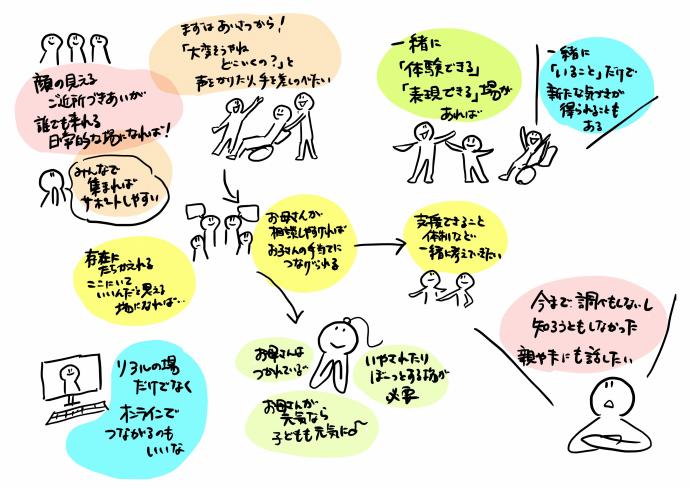 まずはあいさつから!
「大変そうやね
どこいくの?」と
声をかけたり、手を差しのべたい
顔の見える
ご近所づきあいが
誰でも来れる
日常的な場になれば!
みんなで
集まれば
サポートしやすい
一緒に
「体験できる」
「表現できる」場が
あれば
一緒に
「いること」だけで
新たな気づきが
得られることも
ある
お母さんが
相談しやすければ
お子さんの手当てに
つなげられる
支援できること
体制など
一緒に考えていきたい
存在に
たちかえれる
ここにいて
いいんだと思える
場になれば…
今まで調べもしないし
知ろうともしなかった
親や夫にも話したい
リアルの場
だけでなく
オンラインで
つながるのも
いいな
お母さんは
つかれている
いやされたり
ぼーっとする場が
必要
お母さんが
元気なら
子どもも元気に